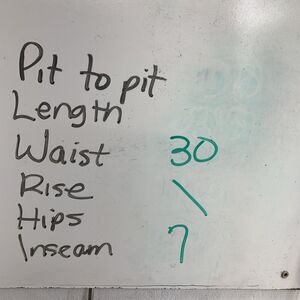 Pit to pit
Length
Waist 30
Rise \
Hips
Inseam 7